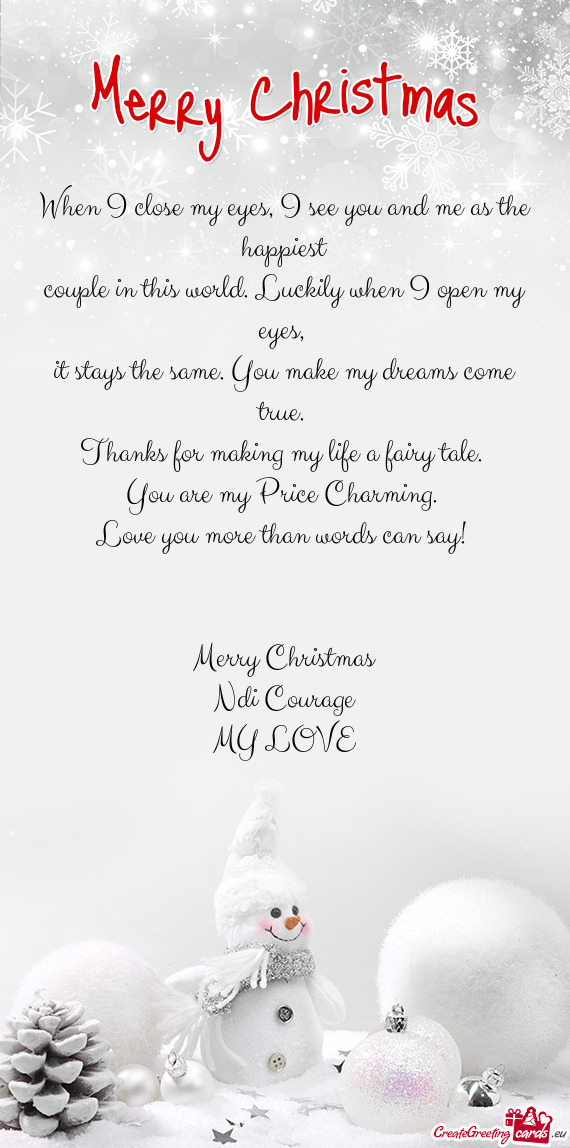 Merry Christmas
When I close my eyes, I see you and me as the
happiest
couple in this world. Luckily when I open my
eyes,
it stays the same. You make my dreams come
true.
Thanks for making my life a fairy tale.
You are my Price Charming.
Love you more than words can say!
Merry Christmas
Ndi Courage
MY LOVE
CreateGreetingcards.eu